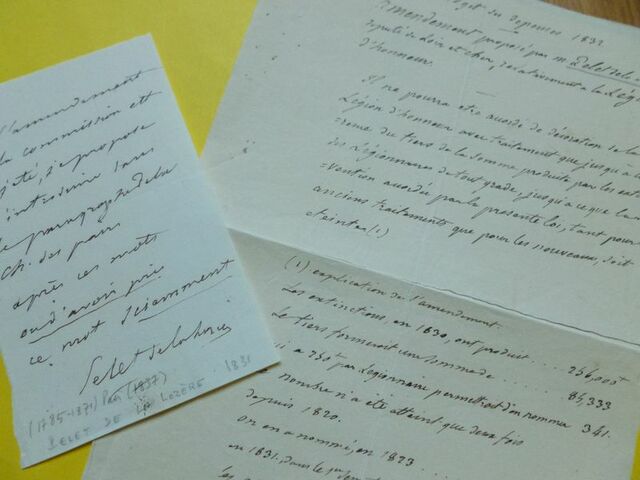 l'amendement
la commission est
jeté, je propose
d'introduire dans
le paragraphe de la
Ch. des pairs
après ces mots
ou d'avoir pris
ce mot sciemment
Pelet de la Lozère
(1785-1871) Pair (1837) 1831
PELET DE LA LOZÈRE
Budget des dépenses 1832
amendement proposé par M. Pelet de la
député de Loir et cher, relativement à la Lég
d'honneur.
Il ne pourra être accordé de décoration de la
Légion d'honneur avec traitement que jusqu'à
=rence du tiers de la somme produite par les ext
des légionnaires de tout grade, jusqu'à ce que la
=vention accordée par la présente loi, tant pour
anciens traitements que pour les nouveaux, soit
éteinte (1)
(1) explication de l'amendement.
Les extinctions, en 1830, ont produit ... 256,000f
Le tiers formeroit une somme de ... 85,333
qui a 250f par légionnaire permettroit d'en nommer 341.
nombre n'a été atteint que deux fois
depuis 1820.
on en a nommé, en 1823 ...
en 1831, dans le 1er